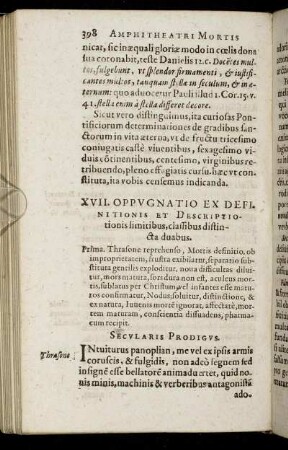 398 AMPHITHEATRI MORTIS
nicat, sic inæquali gloriæ modo in cœlis dona
sua coronabit, teste Danielis 12. c. Docētes mul
tos, fulgebunt, vt splendor firmamenti, & iustifi-
cantes multos, tanquam stellæ in seculum, & in æ-
ternum: quo aduocetur Pauli illud 1. Cor. 15. v.
41. stella enim à stella differt decore.
Sicut vero distinguimus, ita curiosas Pon-
tificiorum determinationes de gradibus san-
ctorum in vita æterna, vt de fructu tricesimo
coniugatis castè viuentibus, sexagesimo vi-
duis cōtinentibus, centesimo, virginibus re-
tribuendo, pleno effugiatis cursu. hæc vt con-
stituta, ita vobis censemus indicanda.
XVII. OPPVGNATIO EX DEFI-
NITIONIS ET DESCRIPTIO-
tionis limitibus, classibus distin-
cta duabus.
Prima. Thrasone reprehenso, Mortis definitio, ob
improprietatem, frustra exibilatur, separatio sub-
stituta gentilis exploditur. noua difficultas dilui-
tur, mors mutata, ianua dicenda non est, aculeus mor-
tis, sublatus per Christum, vel infantes esse mortu-
ros confirmatur, Nodus, soluitur, distinctione, &
ex natura, Iuuenis morte ignorata, affectata, mor-
tem maturam, conscientia dissuadens, pharma-
cum recipit.
SECVLARIS PRODIGVS.
Thrasone INtuiturus panoplian, me vel ex ipsis armis
coruscis, & fulgidis, non adeò segnem sed
insignē esse bellatorē animaduertet, quid no-
uis minis, machinis & verberibus antagonistā
ado-